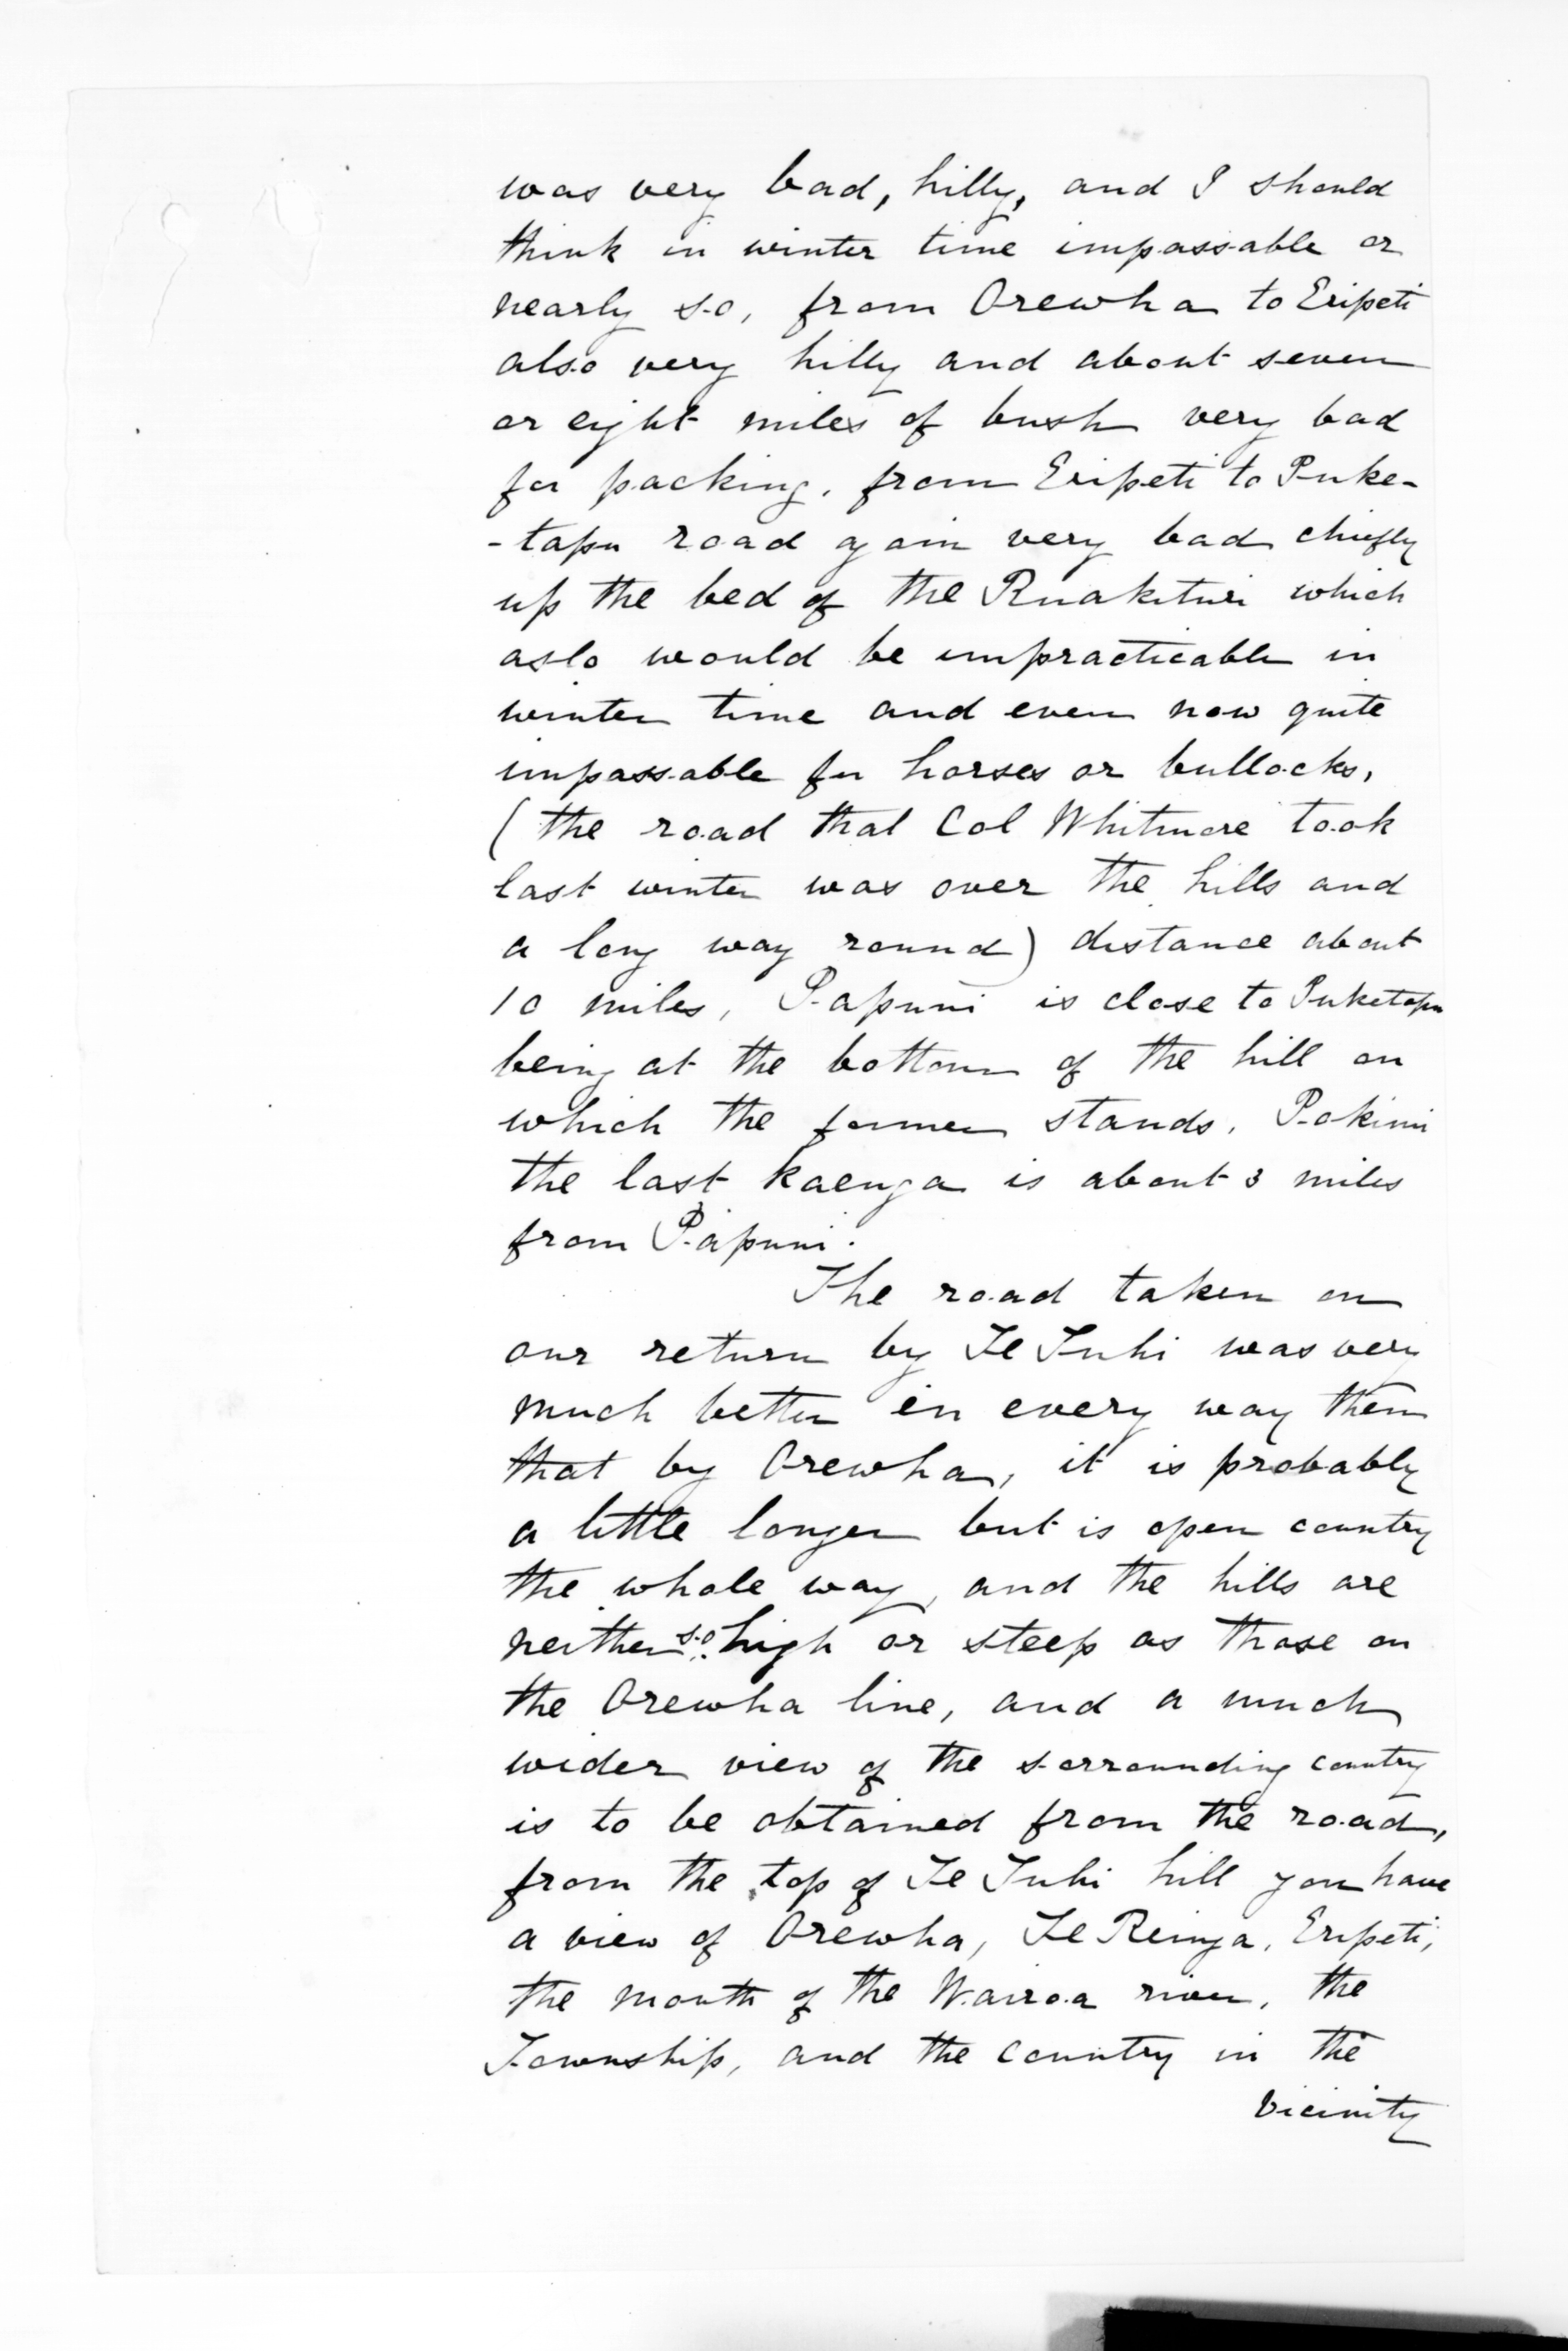 was very bad, hilly, and I should
think in winter time impassable or
nearly so, from Orewha to Eripeti
also very hilly and about seven
or eight miles of bush very bad
for packing. from Eripeti to Puke-
-tapu road again very bad chiefly
up the bed of the Ruakituri which
aslo would be impracticable in
winter time and even now quite
impassable for horses or bullocks,
(the road that Col Whitmore took
last winter was over the hills and
a long way round) distance about
10 miles, Papuni is close to Puketapu
being at the bottom of the hill on
which the former stands. Pokimi
the last kaenga is about 3 miles
from Papuni.
The road taken on
our return by Te Tuhi was very
much better in every way then
that by Orewha, it is probably
a little longer but is open country
the whole way, and the hills are
neither so high or steep as those on
the Orewha line, and a much
wider view of the sorrounding country
is to be obtained from the road,
from the top of Te Tuhi hill you have
a view of Orewha, Te Reinga, Eripeti,
the mouth of the Wairoa river, the
Township, and the country in the
vicinity